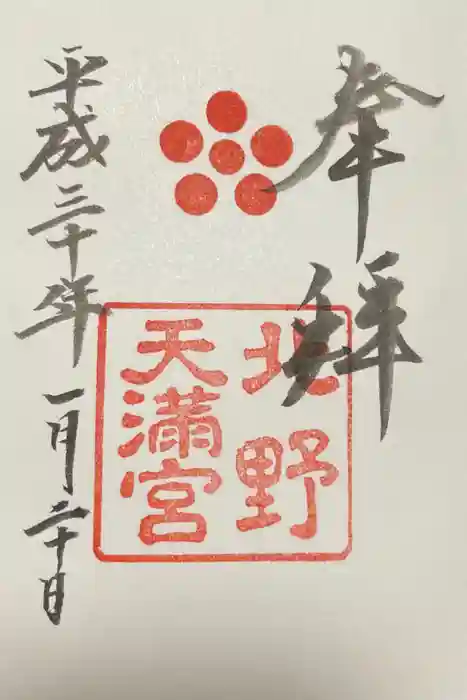 奉拝
北野
天満宮
平成三十年一月二十日